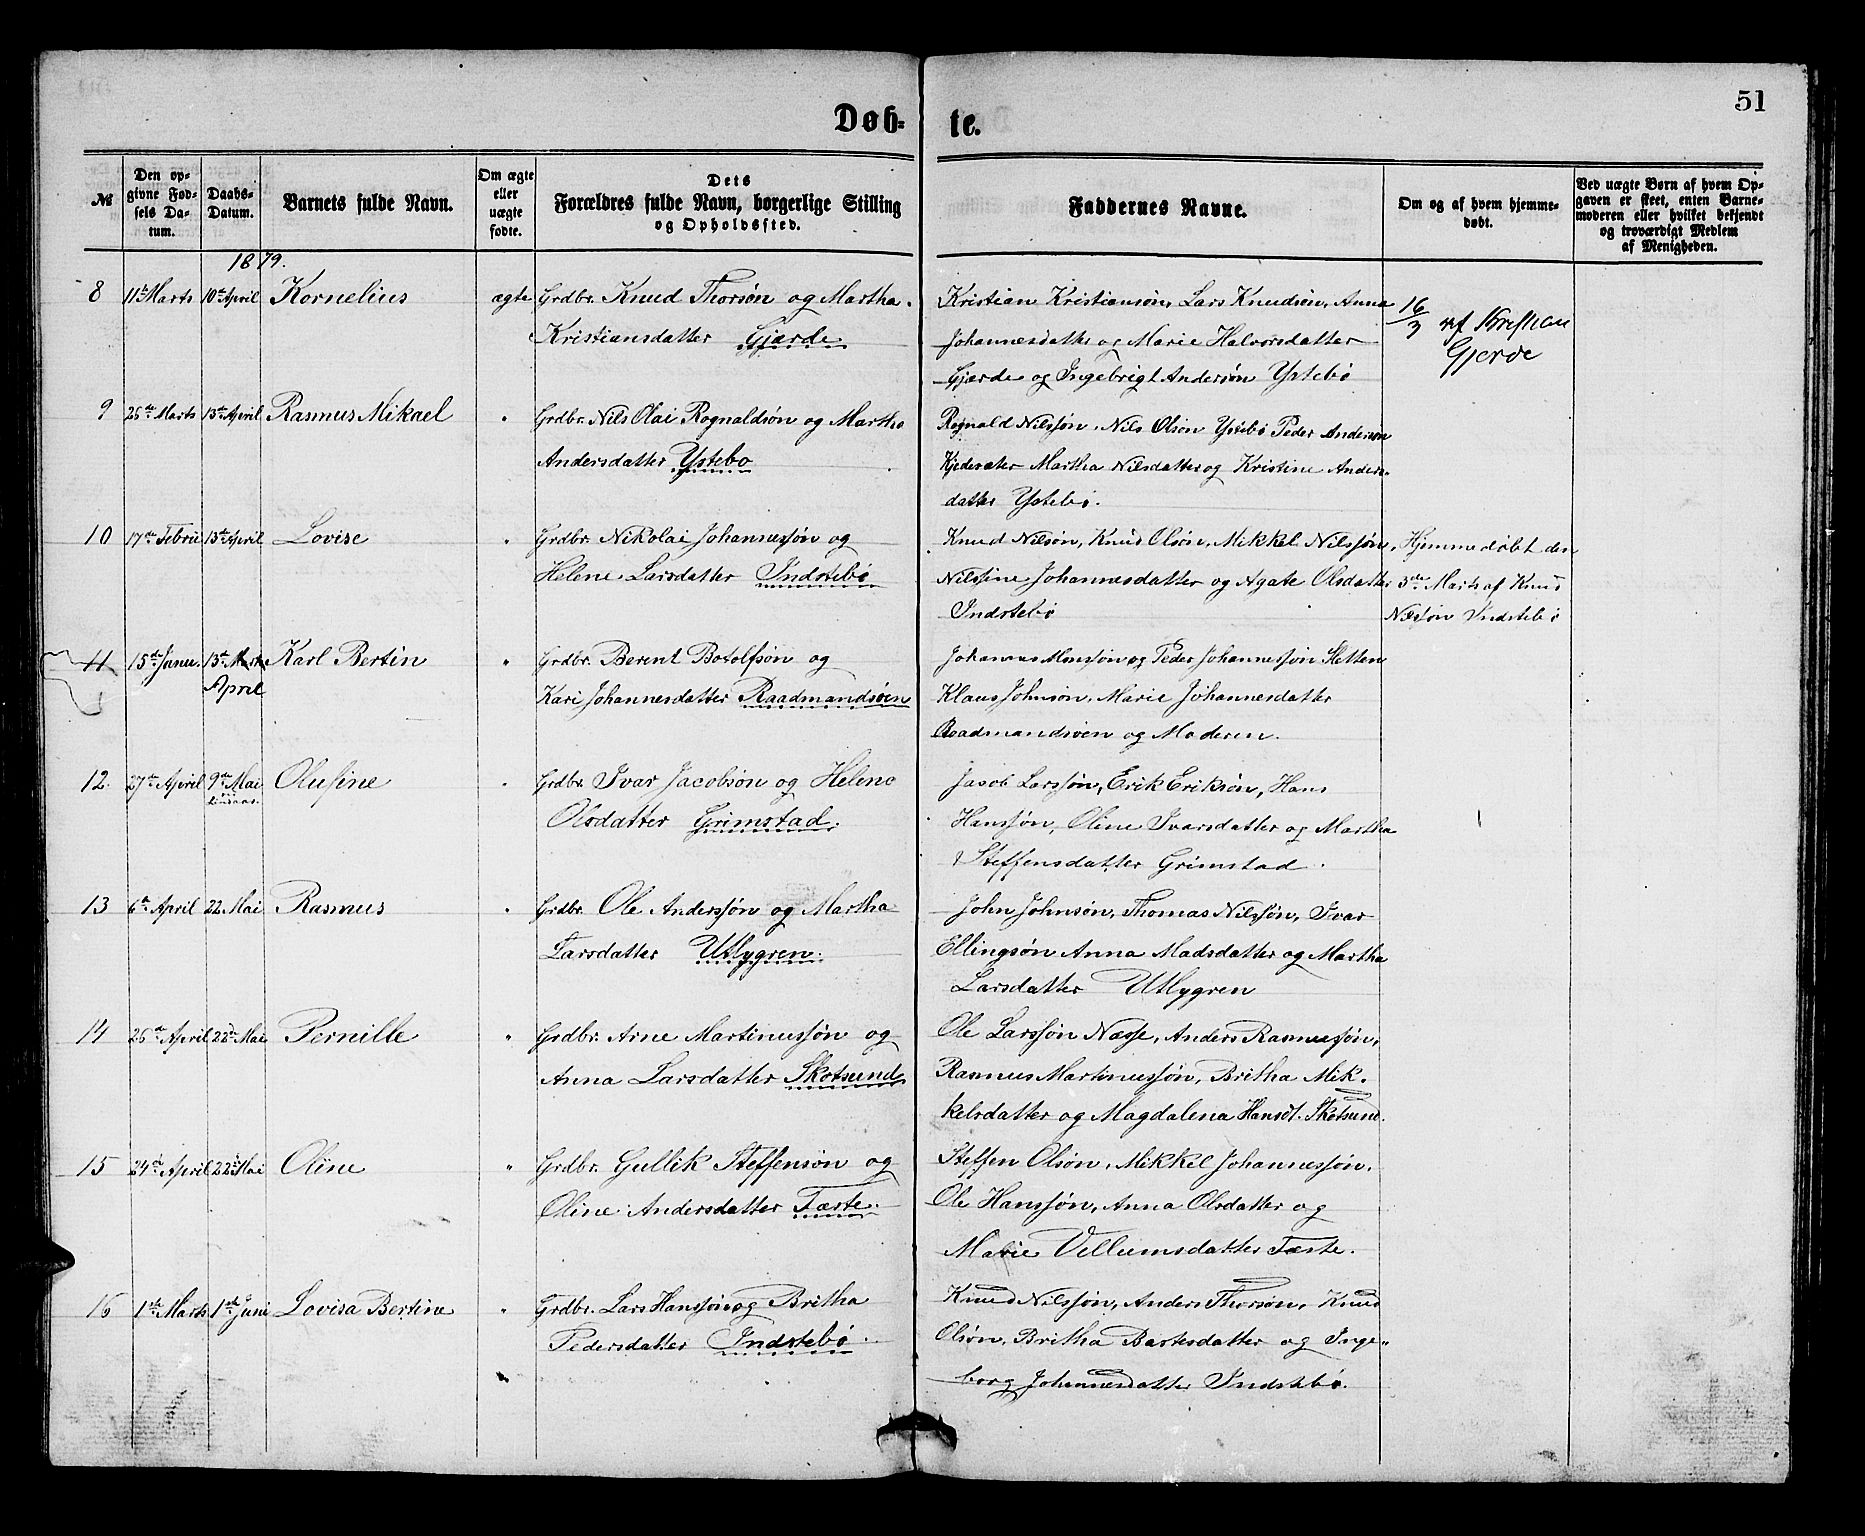 51
Døb-
te.
№
Den opgivne Fødsels Datum.
Daabs-Datum.
Barnets fulde Navn.
Om ægte eller uægte fødte.
Dets Forældres fulde Navn, borgerlige Stilling og Opholdssted.
Faddernes Navne.
Om og af hvem hjemmedøbt.
Ved uægte Børn af hvem Opgaven er skeet, enten Barnemoderen eller hvilket bekjendt og troværdigt Medlem af Menigheden.
1879.
8 11te Marts 10de April Kornelius ægte Grdbr. Knud Thorsøn og Martha
Kristiansdatter Gjærde.
Kristian Kristiansøn, Lars Knudsøn, Anna
Johannesdatter og Marie Halvorsdatter
Gjærde og Ingebrigt Andersøn Ystebø
16/3 af Kristian
Gjerde
9 25de Marts 13de April Rasmus Mikael " Grdbr. Nils Olai Rognaldsøn og Martha
Andersdatter Ystebø
Rognald Nilssøn, Nils Olsøn Ystebø Peder Andersøn
Kjedesæter Martha Nilsdatter og Kristine Anders-
datter Ystebø.
10 17de Febru 13de April Lovise " Grdbr. Nikolai Johannessøn og
Helene Larsdatter Indstebø
Knud Nilsøn, Knud Olsøn, Mikkel Nilssøn,
Nilssine Johannesdatter og Agate Olsdatter
Indstebø
Hjemmedøbt den
3de Marts af Knud
Nilssøn Indstebø
11 15de Janu. 13de Marts Karl Bertin " Grdbr. Berent Botolfsøn og
April
Kari Johannesdatter Raadmandsøen
Johannes Monssøn og Peder Johannessøn Sletten
Klaus Johnsøn, Marie Johannesdatter
Raadmandsøen og Moderen.
12. 27de April 9de Mai Olufine " Grdbr. Ivar Jacobsøn og Helene
Lindaas.
Olsdatter Grimstad.
Jacob Larssøn, Erik Eriksøn, Hans
Hanssøn, Oline Ivarsdatter og Martha
Steffensdatter Grimstad.
13 6te April 22 Mai Rasmus " Grdbr. Ole Anderssøn og Martha
Larsdatter Utlygren.
John Johnsøn, Thomas Nilssøn, Ivar
Ellingsøn Anna Madsdatter og Martha
Larsdatter Utlygren
14 26de April 22de Mai Pernille " Grdbr. Arne Martinussøn og
Anna Larsdatter Skotsund
Ole Larssøn Næsse, Anders Rasmussøn,
Rasmus Martinussøn, Britha Mik-
kelsdatter og Magdalena Hansdt. Skotsund.
15 24de April 22de Mai Oline " Grdbr. Gullik Steffensøn og
Oline Andersdatter Tæste.
Steffen Olsøn, Mikkel Johannessøn,
Ole Hanssøn, Anna Olsdatter og
Marie Vellumsdatter Tæste.
16 1ste Marts 1ste Juni Lovisa Bertine " Grdbr. Lars Hanssøn og Britha
Pedersdatter Indstebø.
Knud Nilssøn, Anders Thorsøn, Knud
Olsøn, Britha Bartesdatter og Inge-
borg Johannesdatter Indstebø.